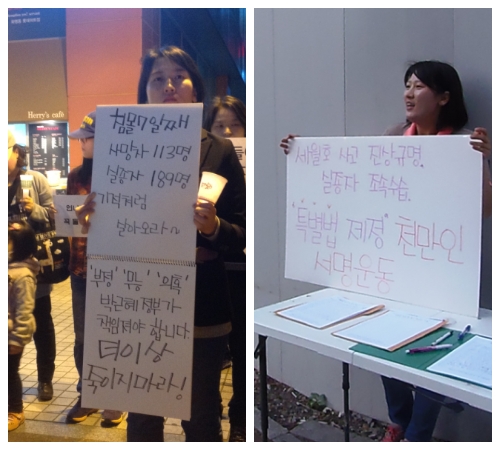 Herry's café
침몰 7일째
사망자 113명
실종자 189명
기적처럼
살아오라~
'부정' '무능' '의혹'
박근혜 정부가
책임져야 합니다.
더이상
죽이지마라!
세월호 사고 진상규명.
실종자 조속수습.
"특별법 제정" 천만인
서명운동